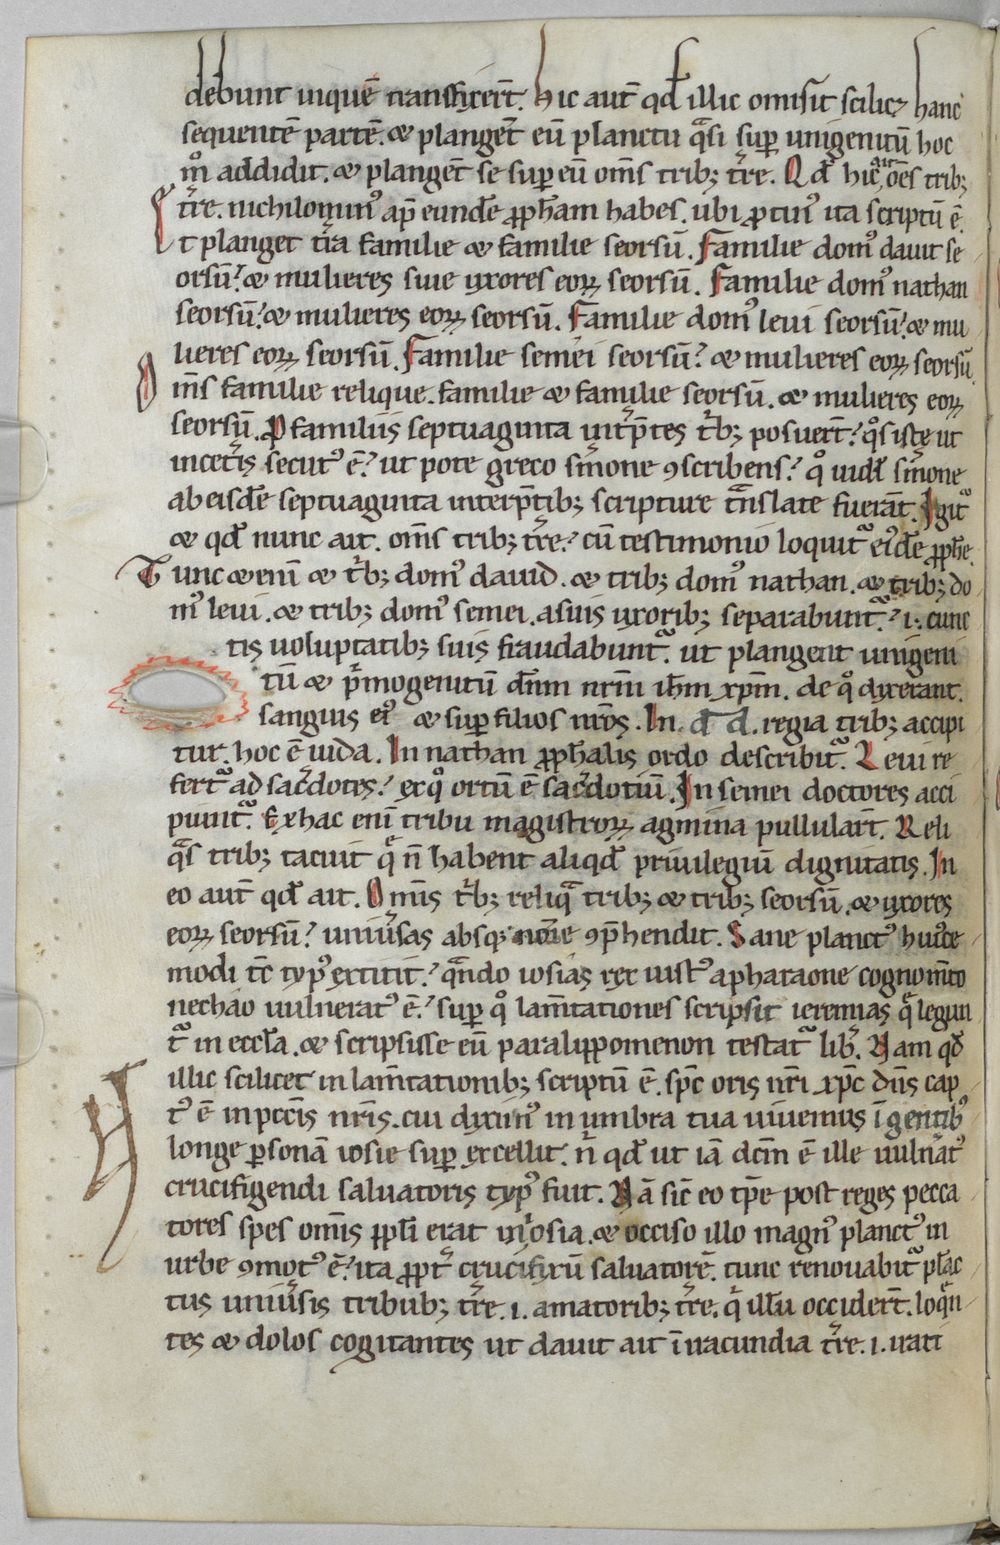 debunt inquē transfixert̄. Hic aut̄ qd̄ illic omisit scilicꝫ hanc
sequentē partē. & planget̄ eū planctu qͣsi suꝑ unigenitū hoc
mͦ addidit. & plangent̄ se suꝑ eū om̄s tribꝫ tr̄re. Qd̄ hic ait om̄s tribꝫ
tr̄re. nichilominꝰ ap̄ eundē ꝓph̄am habes. ubi ꝓtinꝰ ita scriptū ē.
Et planget tr̄a familie & familie seorsū. Familie domꝰ dauit se
orsū? & mulieres siue uxores eoꝝ seorsū. Familie domꝰ nathan
seorsū? & mulieres eoꝝ seorsū. Familie domꝰ leui seorsū? & mu
lieres eoꝝ seorsū. Familie semei seorsū? & mulieres eoꝝ seorsū.
Om̄s familie relique. familie & familie seorsū. & mulieres eoꝝ
seorsū. P familiis septuaginta int̄p̄tes t̄bꝫ posuert̄? qͦs iste ut
in cet̄is secutꝰ ē? ut pote greco sm̄one ꝯscribens? qͦ uidl̄ sm̄one
ab eisdē septuaginta interp̄tibꝫ scripture tͣnslate fuerāt. Igitͣ
& qd̄ nunc ait. om̄s tribꝫ tr̄re? cū testimonio loquitͣ eiꝰdē ꝓph̄e.
Tunc & enī & t̄bꝫ domꝰ dauid. & tribꝫ domꝰ nathan. & tribꝫ do
mꝰ leui. & tribꝫ domꝰ semei. a suis uxoribꝫ separabuntͣ? .i. cunc
tis uoluptatibꝫ suis fraudabuntͣ. ut plangent unigeni
tū & p̄mogenitū dn̄m nrm̄ ih̄m xp̄m. de qͦ dixerant.
sanguis eiꝰ & suꝑ filios nrōs. In. d̄ d. regia tribꝫ accipi
tur. hoc ē iuda. In nathan ꝓph̄alis ordo describitͣ. Leui re
fertͣ ad sac̄dotes? ex qͦ ortū ē sac̄dotiū. In semei doctores acci
piuntͣ. Ex hac enī tribu magistroꝝ agmina pullulart̄. Reli
qͣs tribꝫ tacuit qͤ n̄ habent aliqd̄ priuilegiū dignitatis. In
eo aut̄ qd̄ ait. Omīs t̄bꝫ reliqͣ tribꝫ & tribꝫ seorsū. & uxores
eoꝝ seorsū? uniūsas absqꝫ noīe ꝯp̄hendit. Sane planctꝰ huiꝰce
modi tc̄ typꝰ extitit? qͣndo iosias rex iustꝰ a pharaone cognom̄to
nechao uulneratꝰ ē? suꝑ qͦ lam̄tationes scripsit ieremias qͤ legun
tͣ in eccl̄a. & scripsisse eū paralippomenon testatͣ lib̄. Nam qd̄
illic scilicet in lam̄tationibꝫ scriptū ē. sp̄c oris nr̄i xp̄c dn̄s cap
tꝰ ē in pcc̄is nr̄is. cui diximꝰ in umbra tua uiuemus ī gentibꝰ
longe ꝑsonā iosie suꝑ excellit. n̄ qd̄ ut iā dcm̄ ē ille uuln̄atꝰ
crucifigendi saluatoris typꝰ fuit. Nā sic̄ eo tp̄e post reges pecca
tores spes om̄is ppl̄i erat in iosia. & occiso illo magnꝰ planctꝰ in
urbe ꝯmotꝰ ē? ita ꝓpt̄ crucifixū saluatorē. tunc renouabitͣ pl̄āc
tus uniūsis tribubꝫ tr̄re .i. amatoribꝫ tr̄re. qͥ illū occidert̄. loqͣn
tes & dolos cogitantes ut dauit ait ī iracundia tr̄re .i. irati